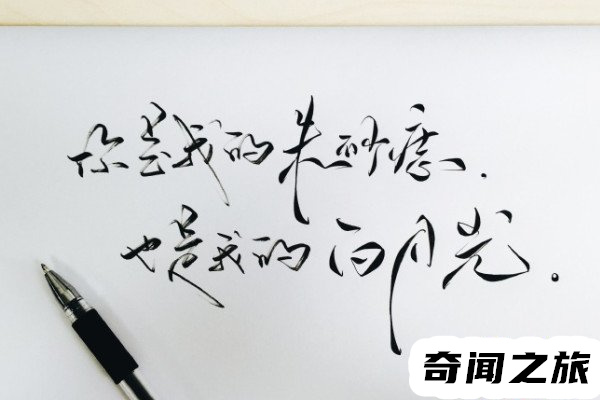 你是我的朱砂痣.
也是我的白月光.
奇闻之旅